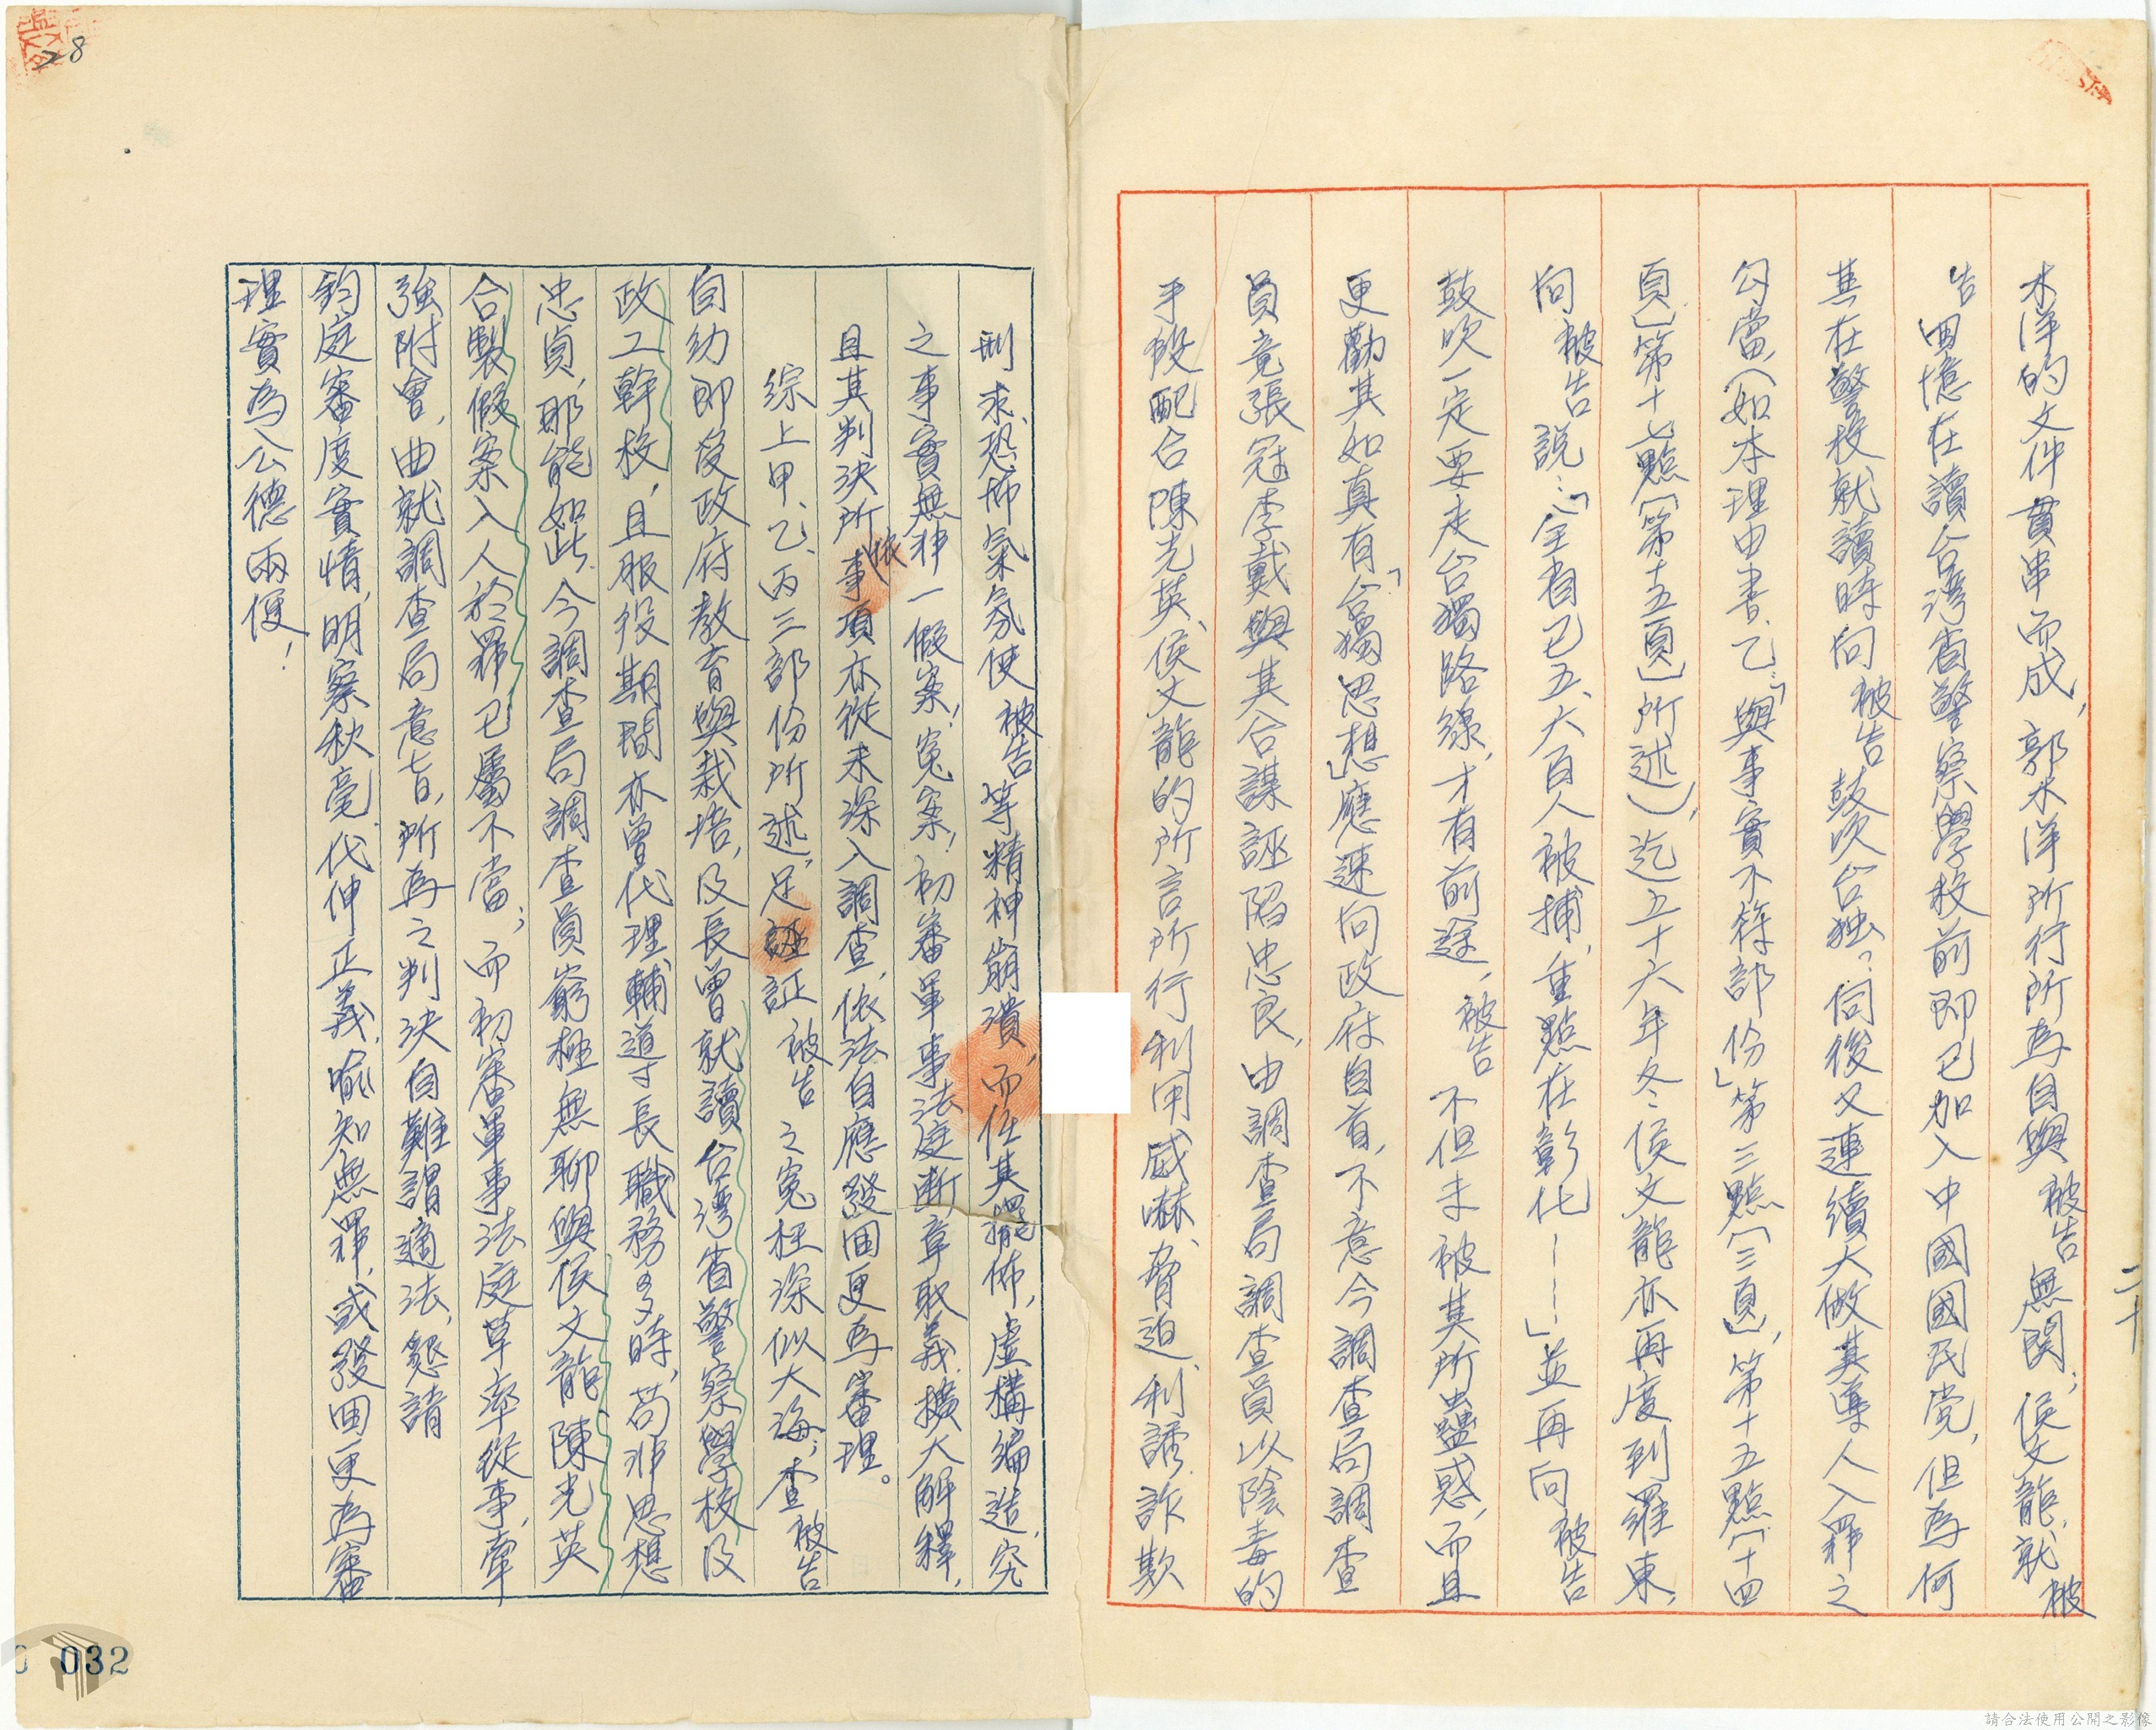 水洋的文件貫串而成，郭水洋所行所為自與被告無関；侯文龍，就被
告回憶在讀台灣省警察學校前即已加入中國國民党，但為何
其在警校就讀時向被告鼓吹台独？伺後又連續大做其導人入罪之
勾當，（如本理由書、乙「與事實不符部份」第三點〔三頁〕，第十五點〔十四
頁〕第十七點〔第十五頁〕所述），迄五十六年冬侯文龍亦再度到羅東，
向被告說：「全省已五、六百人被捕，重點在彰化－－－－」並再向被告
鼓吹一定要走台獨路線，才有前途，被告不但未被其所蠱惑，而且
更勸其如真有「台獨思想」應速向政府自首，不意今調查局調查
員竟張冠李戴與其合謀誣陷忠良，由調查局調查員以陰毒的
手段配合陳光英、侯文龍的所言所行利用威嚇、脅迫、利誘、詐欺
二十
刑求、恐怖氣氛使被告等精神崩潰，而任其擺佈，虛構編造，究
之事實無非一假案！冤案！初審軍事法庭断章取義，擴大解釋，
且其判決所依事項亦從未深入調查，依法自應發回更為審理。
綜上甲、乙、丙三部份所述，足証被告之冤枉深似大海；查被告
自幼即受政府教育與栽培，及長曾就讀台灣省警察學校及
政工幹校，且服役期間亦曾代理輔導長職務多時，苟非思想
忠貞，那能如此，今調查局調查員窮極無聊與侯文龍陳光英
合製假案入人於罪已屬不當；而初審軍事法庭草率從事，牽
強附會，曲就調查局意旨，所為之判決自難謂適法，懇請
鈞庭審度實情，明察秋毫，代伸正義，喻知無罪，或發回更為審
理實為公德兩便！
28
032
請合法使用公開之影像